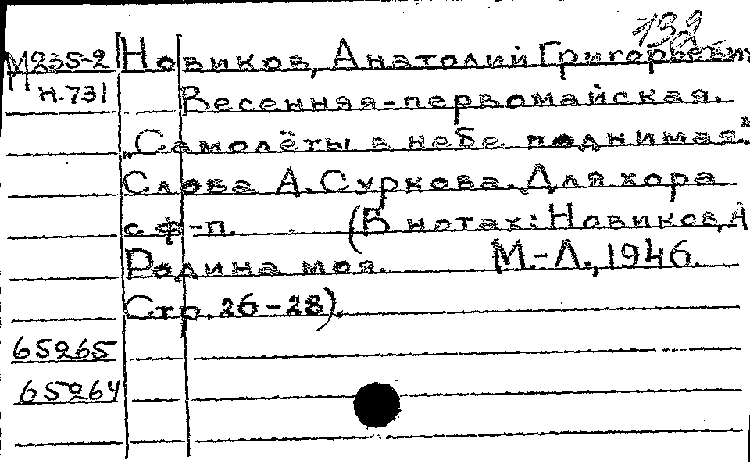 138
М235-2 Новиков, Анатолий Григорьевич
Н.731 Весенняя-первомайская.
„Самолёты в небе поднимая."
Слова А. Суркова. Для хора
с ф-п. (В нотах: Новиков, А
Родина моя. М.-Л., 1946.
Стр. 26-28).
65265
65264